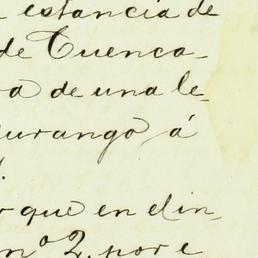 estancia de
de Cuenca
a de una le-
Durango á
r que en el in-
nº 2, por e